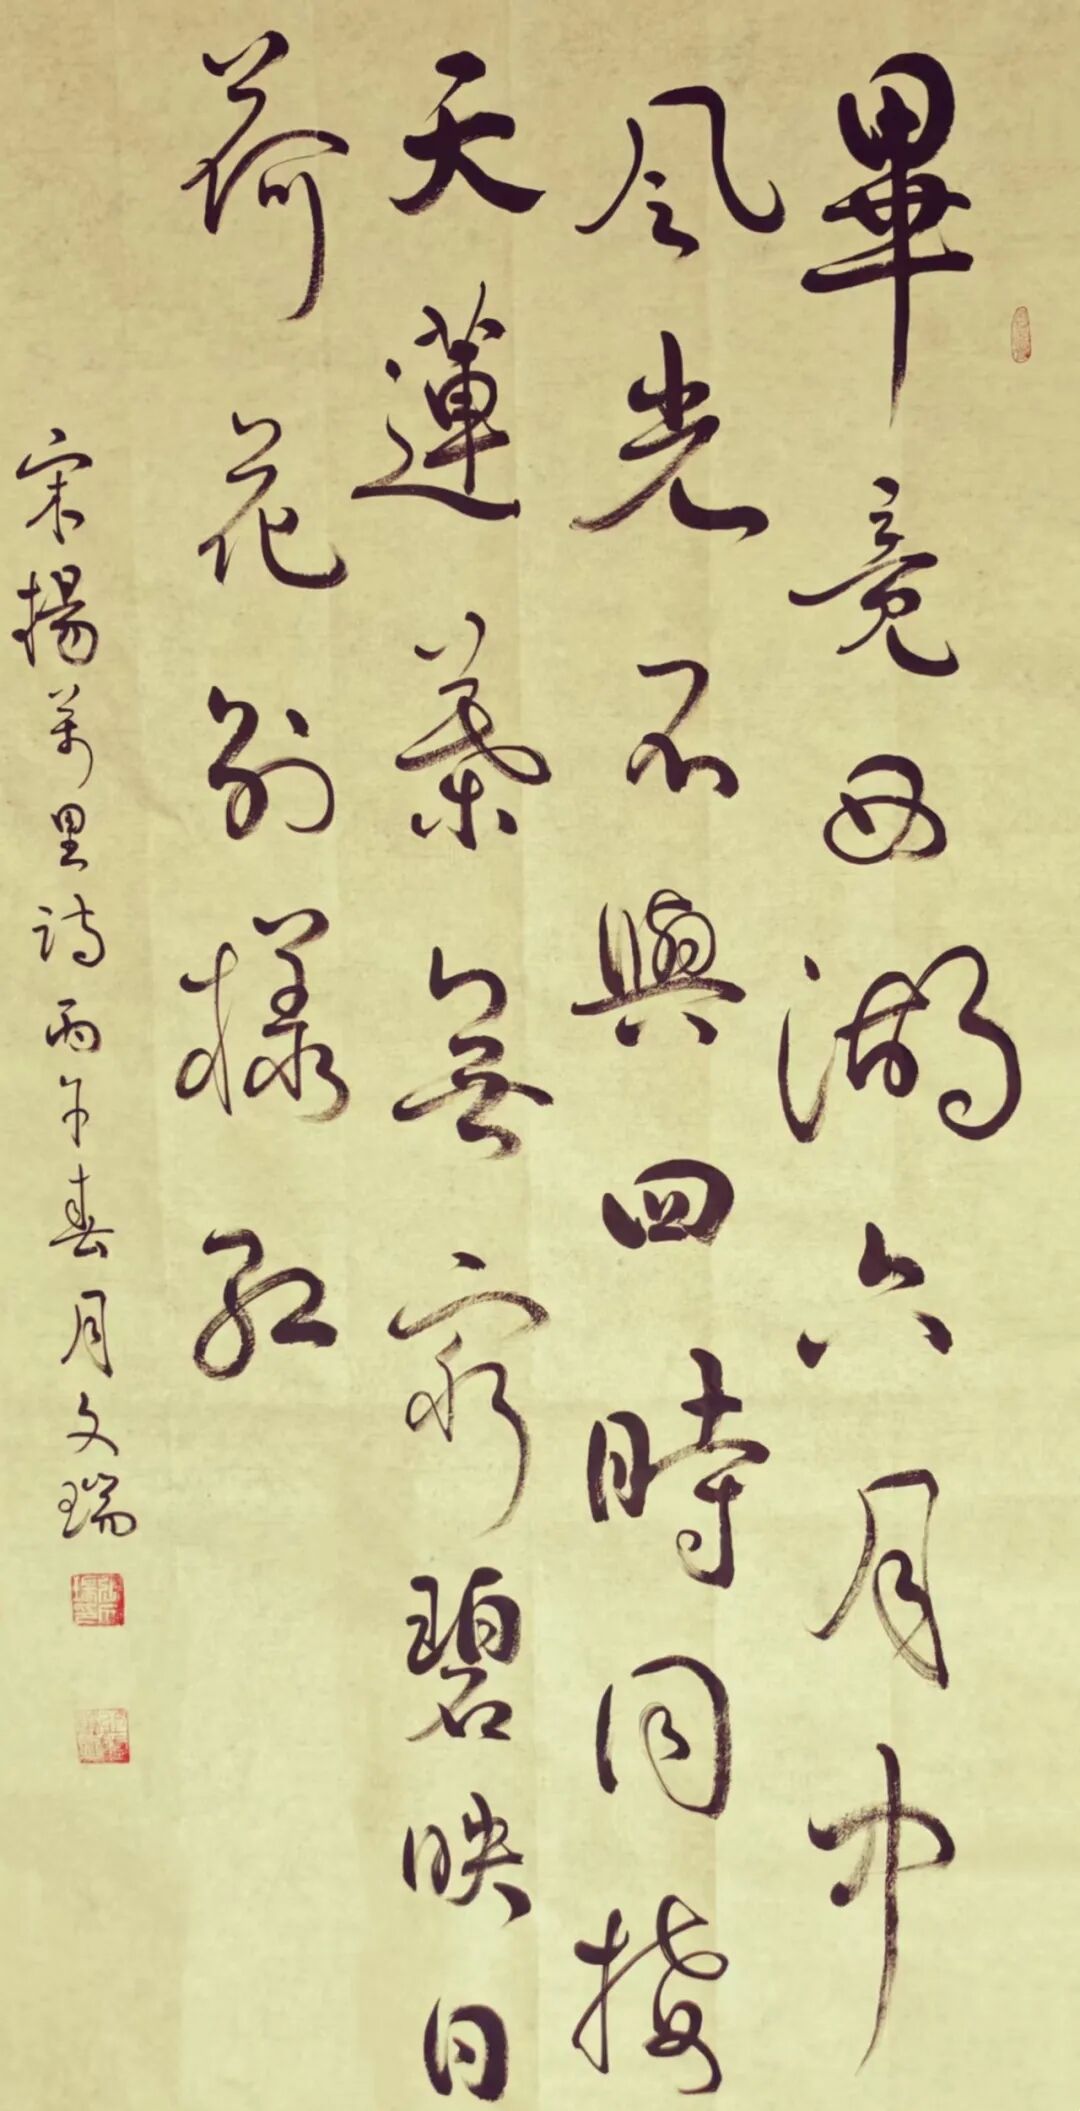 畢竟西湖六月中
風光不與四時同接
天蓮葉無窮碧映日
荷花別樣紅
宋楊萬里詩丙午春月文瑞